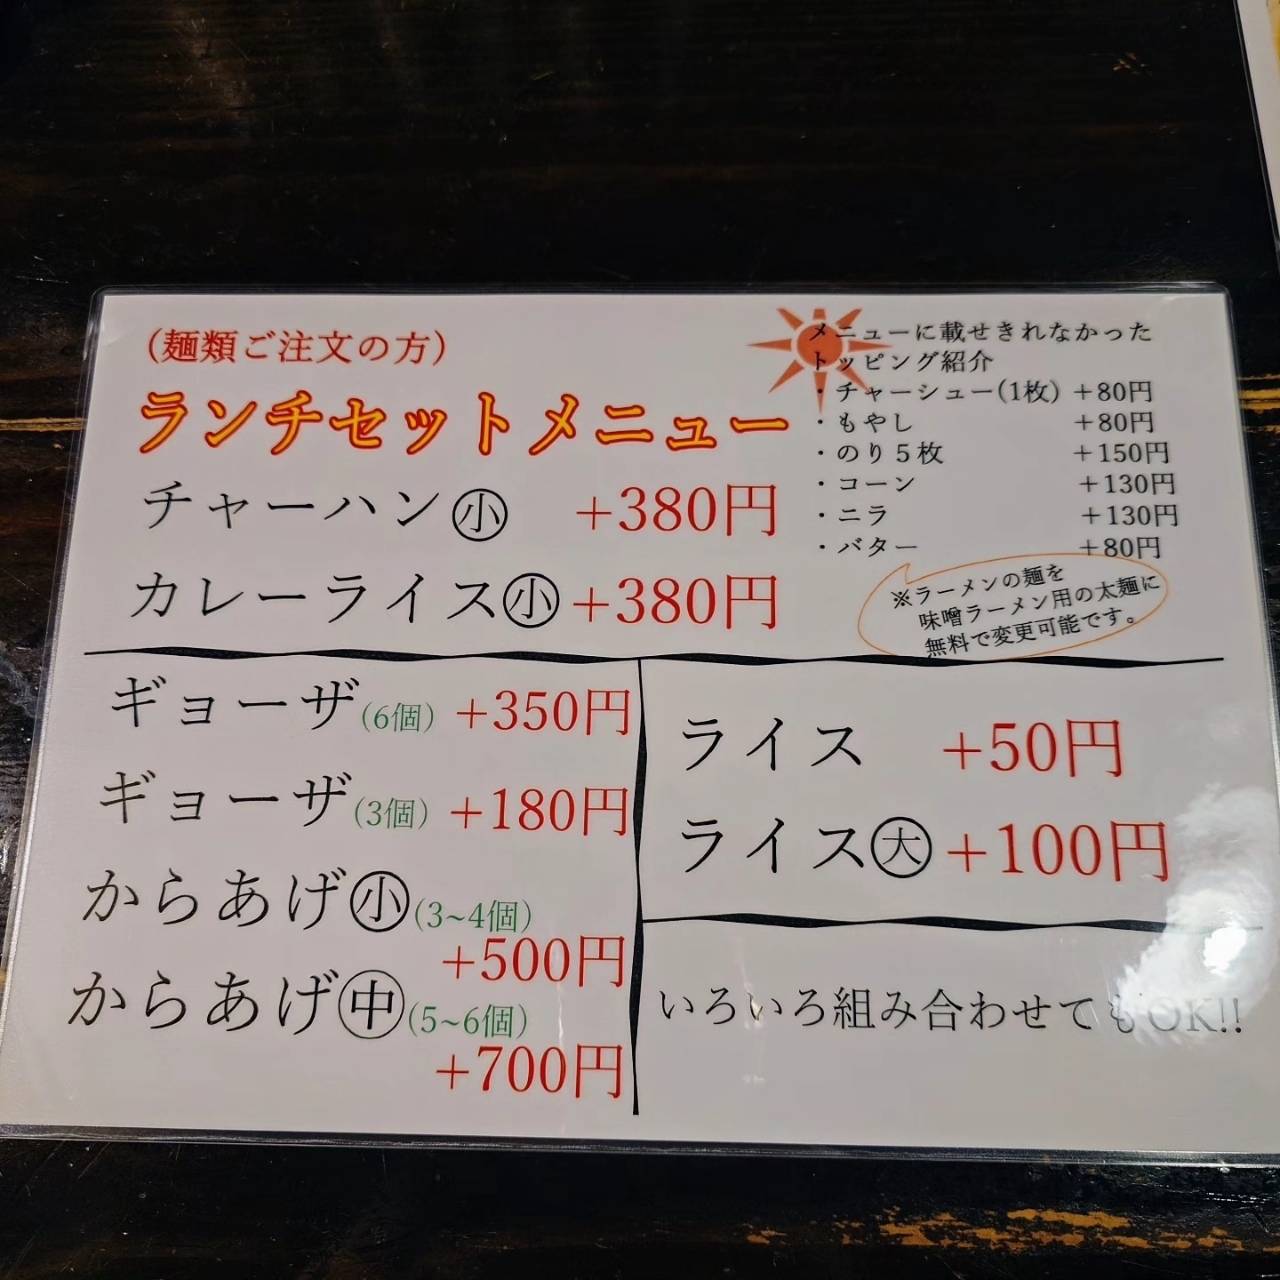 （麺類ご注文の方）
ランチセットメニュー
チャーハン㊙小 +380円
カレーライス㊙小 +380円
メニューに載せきれなかった
トッピング紹介
・チャーシュー(1枚) +80円
・もやし +80円
・のり５枚 +150円
・コーン +130円
・ニラ +130円
・バター +80円
※ラーメンの麺を
味噌ラーメン用の太麺に
無料で変更可能です。
ギョーザ(6個) +350円
ギョーザ(3個) +180円
からあげ小(3~4個)
+500円
からあげ㊥(5~6個)
+700円
ライス +50円
ライス大 +100円
いろいろ組み合わせてもOK!!